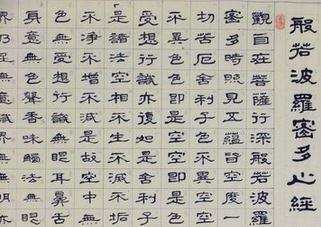 般若波羅密多心經
觀自在菩薩行深般若波羅
密多時照見五蘊皆空度一
切苦厄舍利子色不異空空
不異色色即是空空即是色
受想行識亦復如是舍利子
是諸法空相不生不滅不垢
不淨不增不減是故空中無
色無受想行識無眼耳鼻舌
身意無色聲香味觸法無眼
界乃至無意識界無無明亦